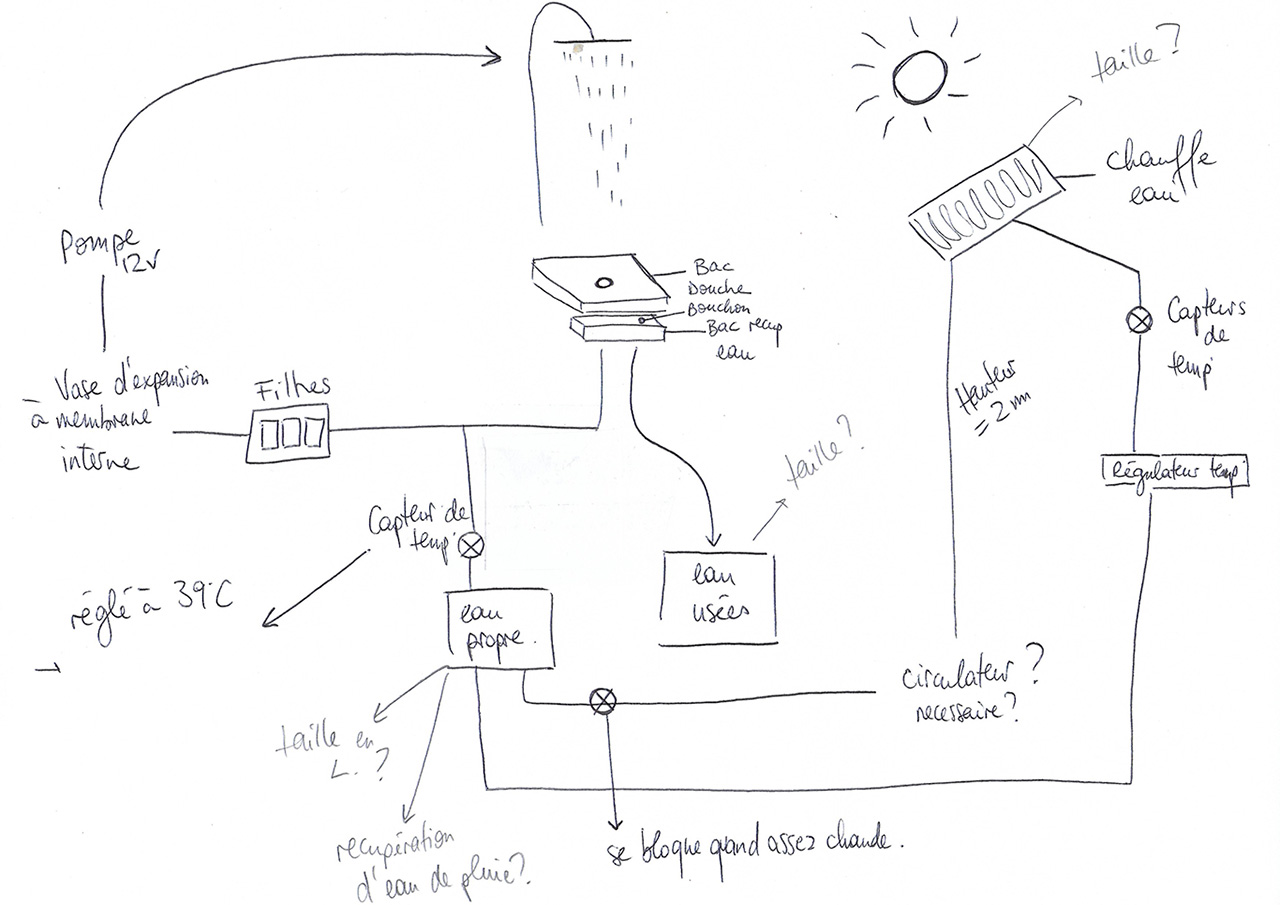 taille ?
chauffe
eau
Pompe
12V
Bac
Douche
Bouchon
Bac recup
eau
Capteurs
de
temp°
Vase d'expansion
à membrane
interne
Filtres
Hauteur
= 2m
Régulateur temp°
taille ?
Capteur de
temp°
réglé à 39°C
eau
usées
eau
propre.
circulateur ?
necessaire ?
taille en
L. ?
recupération
d'eau de pluie ?
se bloque quand assez chaude.